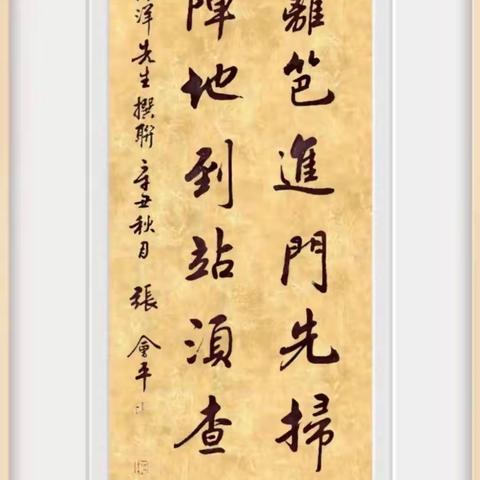 籬笆進門先掃
陣地到站須查
洋先生撰聯 辛丑秋月 張會平